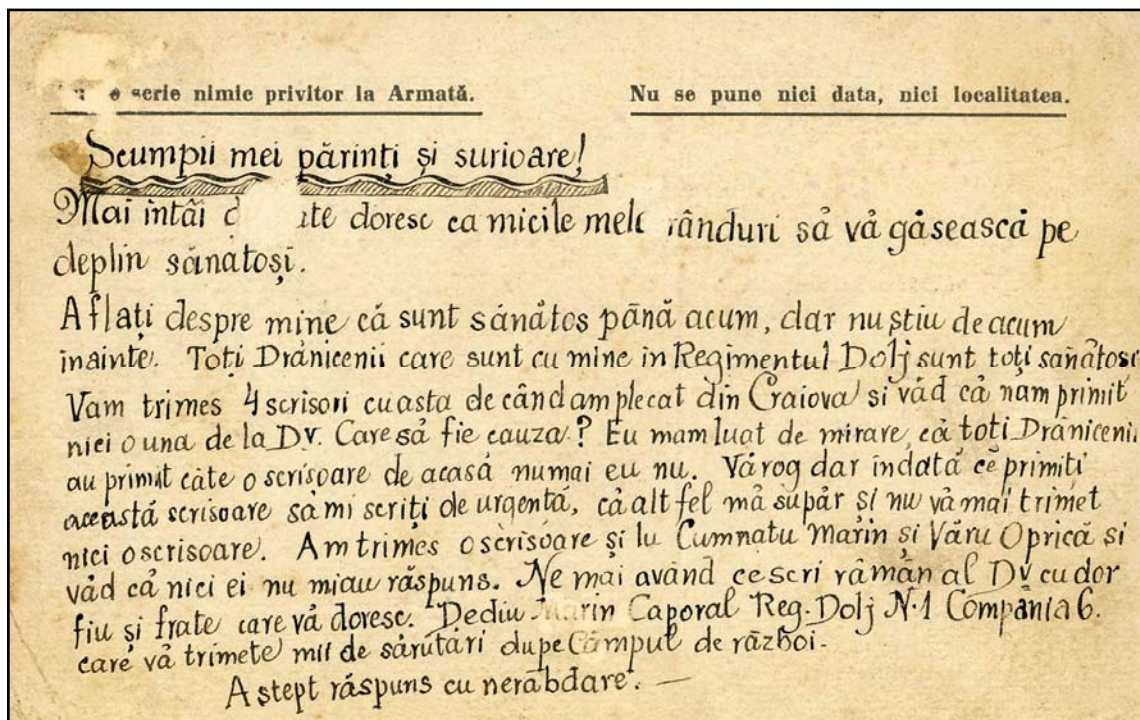 se scrie nimic privitor la Armată. Nu se pune nici data, nici localitatea.
Scumpii mei părinți și surioare!
Mai întâi doresc ca micile mele rânduri să vă găsească pe
deplin sănatoși.
Aflați despre mine că sunt sănătos până acum, dar nu știu de acum
inainte. Toți Drănicenii care sunt cu mine in Regimentul Dolj sunt toți sanătosi
Vam trimes 4 scrisori cu asta de când am plecat din Craiova si văd că nam primit
nici o una de la Dv. Care să fie cauza? Eu mam luat de mirare, că toti Drănicenii
au primit câte o scrisoare de acasă numai eu nu. Vă rog dar îndată ce primiti
această scrisoare sămi scriți de urgentă, că alt fel mă supăr și nu vă mai trimet
nici o scrisoare. Am trimes o scrisoare și lu Cumnatu Marin și Văru Oprică si
văd că nici ei nu miau răspuns. Ne mai având ce scri rămân al Dv cu dor
fiu și frate care vă doresc. Dediu Marin Caporal Reg. Dolj N.1 Compania 6.
care vă trimete mii de sărutări dupe Câmpul de război.-
Astept răspuns cu nerăbdare. —